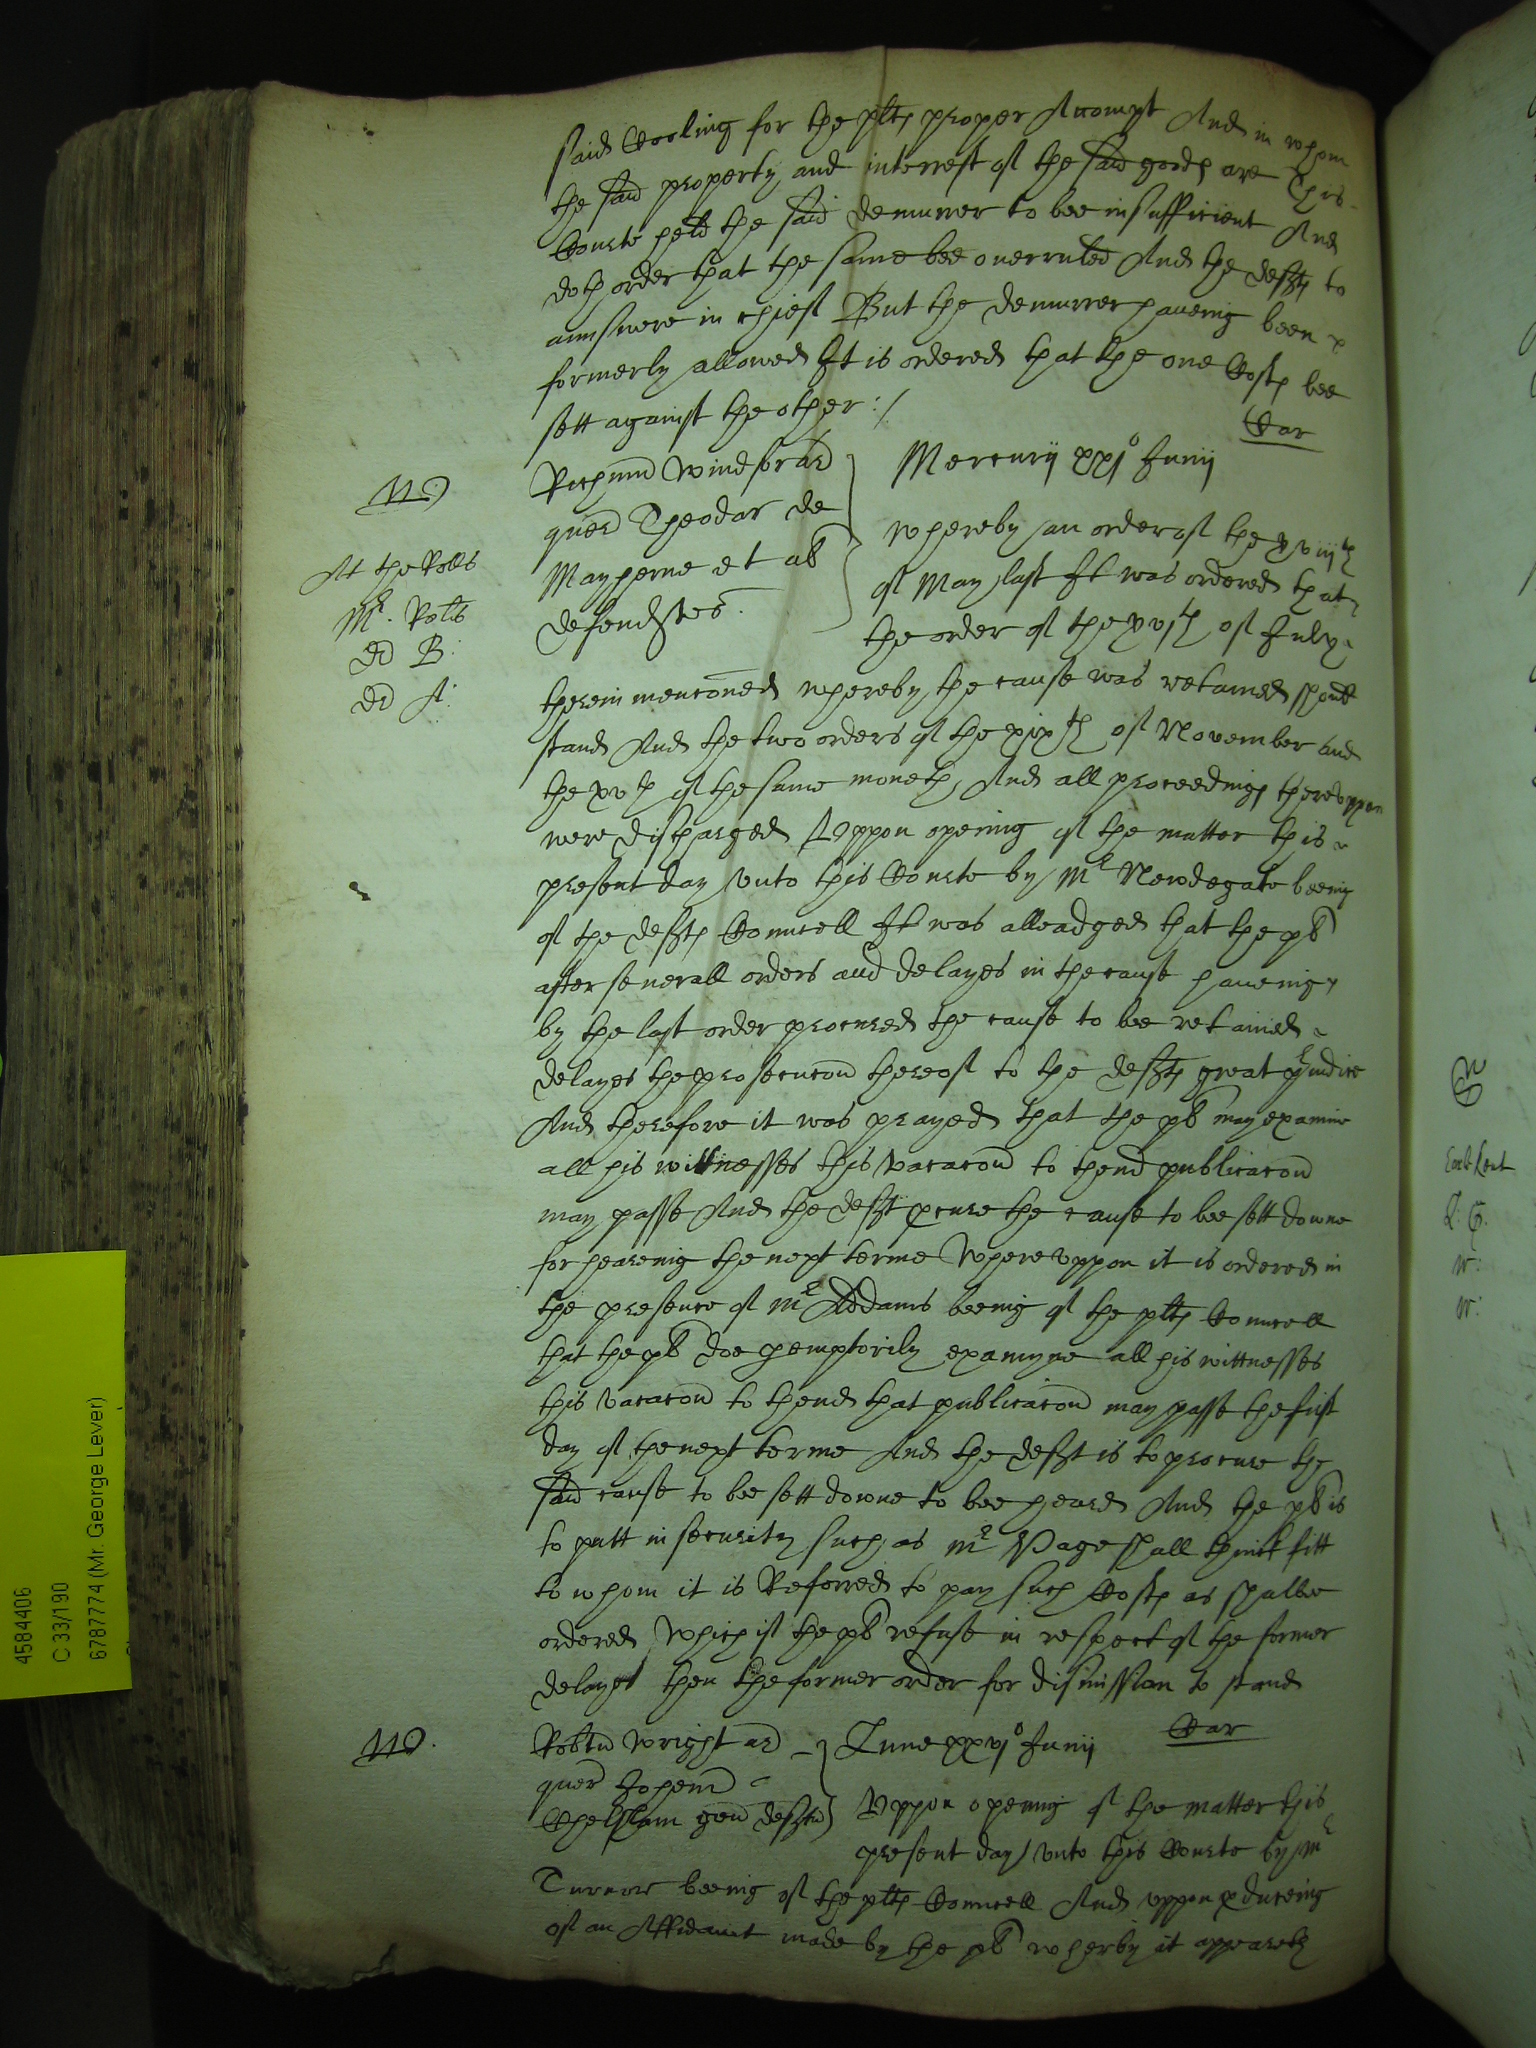 said Cooling for the plts proper Accompt And in whom
the said property and interrest of the said goods are This
Courte held the said demurrer to bee insufficient And
doth order that the same bee overruled And the defts to
aunswere in chief But the demurrer haveing been
formerly allowed It is ordered that the one Costs bee
sett against the other :/
Car
Richmd Windsor ar
quer Theodor de
Mayherne et al
defendtes
Mercurij xxj° Junij
At the Rolls
Mr. Rolls
ed B:
ed A:
whereby an order of the xviijth
of May last It was ordered that
the order of the xvjth of July
therein menconed whereby the cause was retained should
stand And the two orders of the xixth of November and
the xxth of the same moneth And all proceedings thereuppon
were discharged Uppon opening of the matter this
present day unto this Courte by Mr Newdegate beeing
of the defts Councell It was alleadged that the pl
after severall orders and delayes in the cause haveing
by the last order procured the cause to bee retained
delayes the prosecucon thereof to the defts great pjudice
And therefore it was prayed that the pl may examine
all his wittnesses this vacacon to thend publicacon
may passe And the deft pcure the cause to bee sett downe
for heareing the next terme Whereuppon it is ordered in
the presence of Mr Addams beeing of the plts Councell
that the pl doe pemptorily examyne all his wittnesses
this vacacon to thend that publicacon may passe the first
day of the next terme And the deft is to procure the
said cause to bee sett downe to bee heard And the pl is
to putt in security such as Mr Page shall think fitt
to whom it is Referred to pay such Costs as shalbe
ordered Which if the pl refuse in respect of the former
delayes then the former order for dismission to stand
Car
Robtu Wright ar
quer Johem
Chelsham gen deftu
Lune xxvj° Junij
Uppon opening of the matter this
present day unto this Courte by Mr
Turnor beeing of the plts Councell And uppon pduceing
of an Affidavit made by the pl wherby it appeareth
4584406
C 33/190
6787774 (Mr. George Lever)